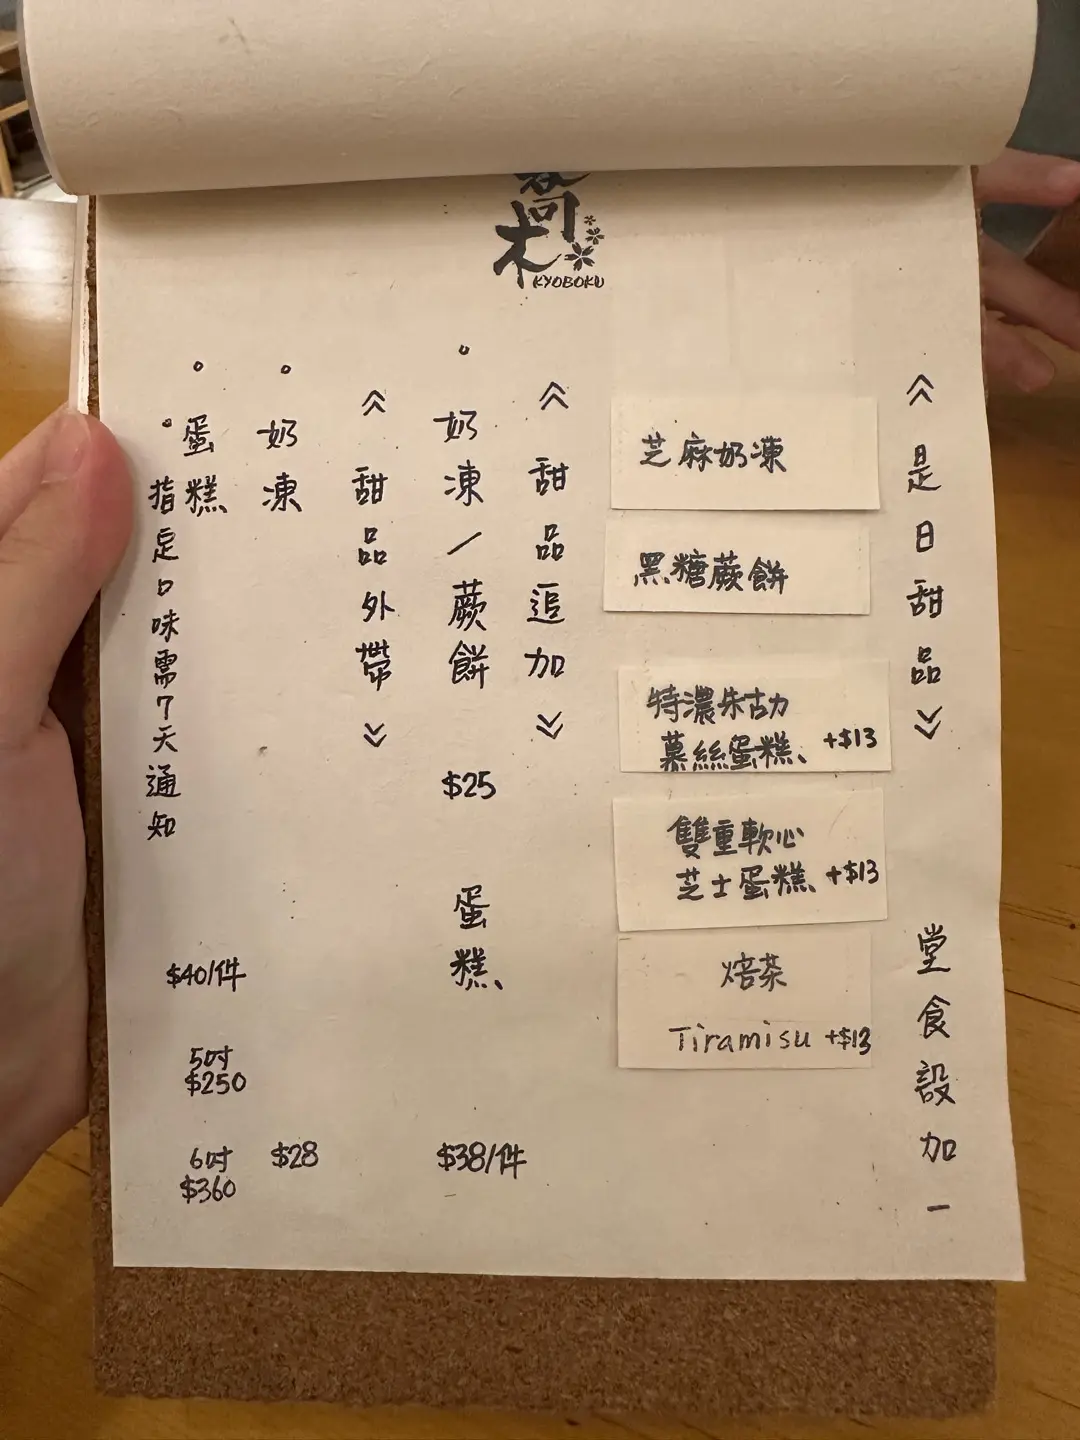 喬木
KYOBOKU
《是日甜品》
堂食設加一
芝麻奶凍
黑糖蕨餅
特濃朱古力
慕絲蛋糕 +$13
雙重軟心
芝士蛋糕 +$13
焙茶
Tiramisu +$13
《甜品追加》
。奶凍/蕨餅 $25
蛋糕 $38/件
《甜品外帶》
。奶凍 $28
。蛋糕 $40/件
5吋
$250
6吋
$360
。指定口味需7天通知